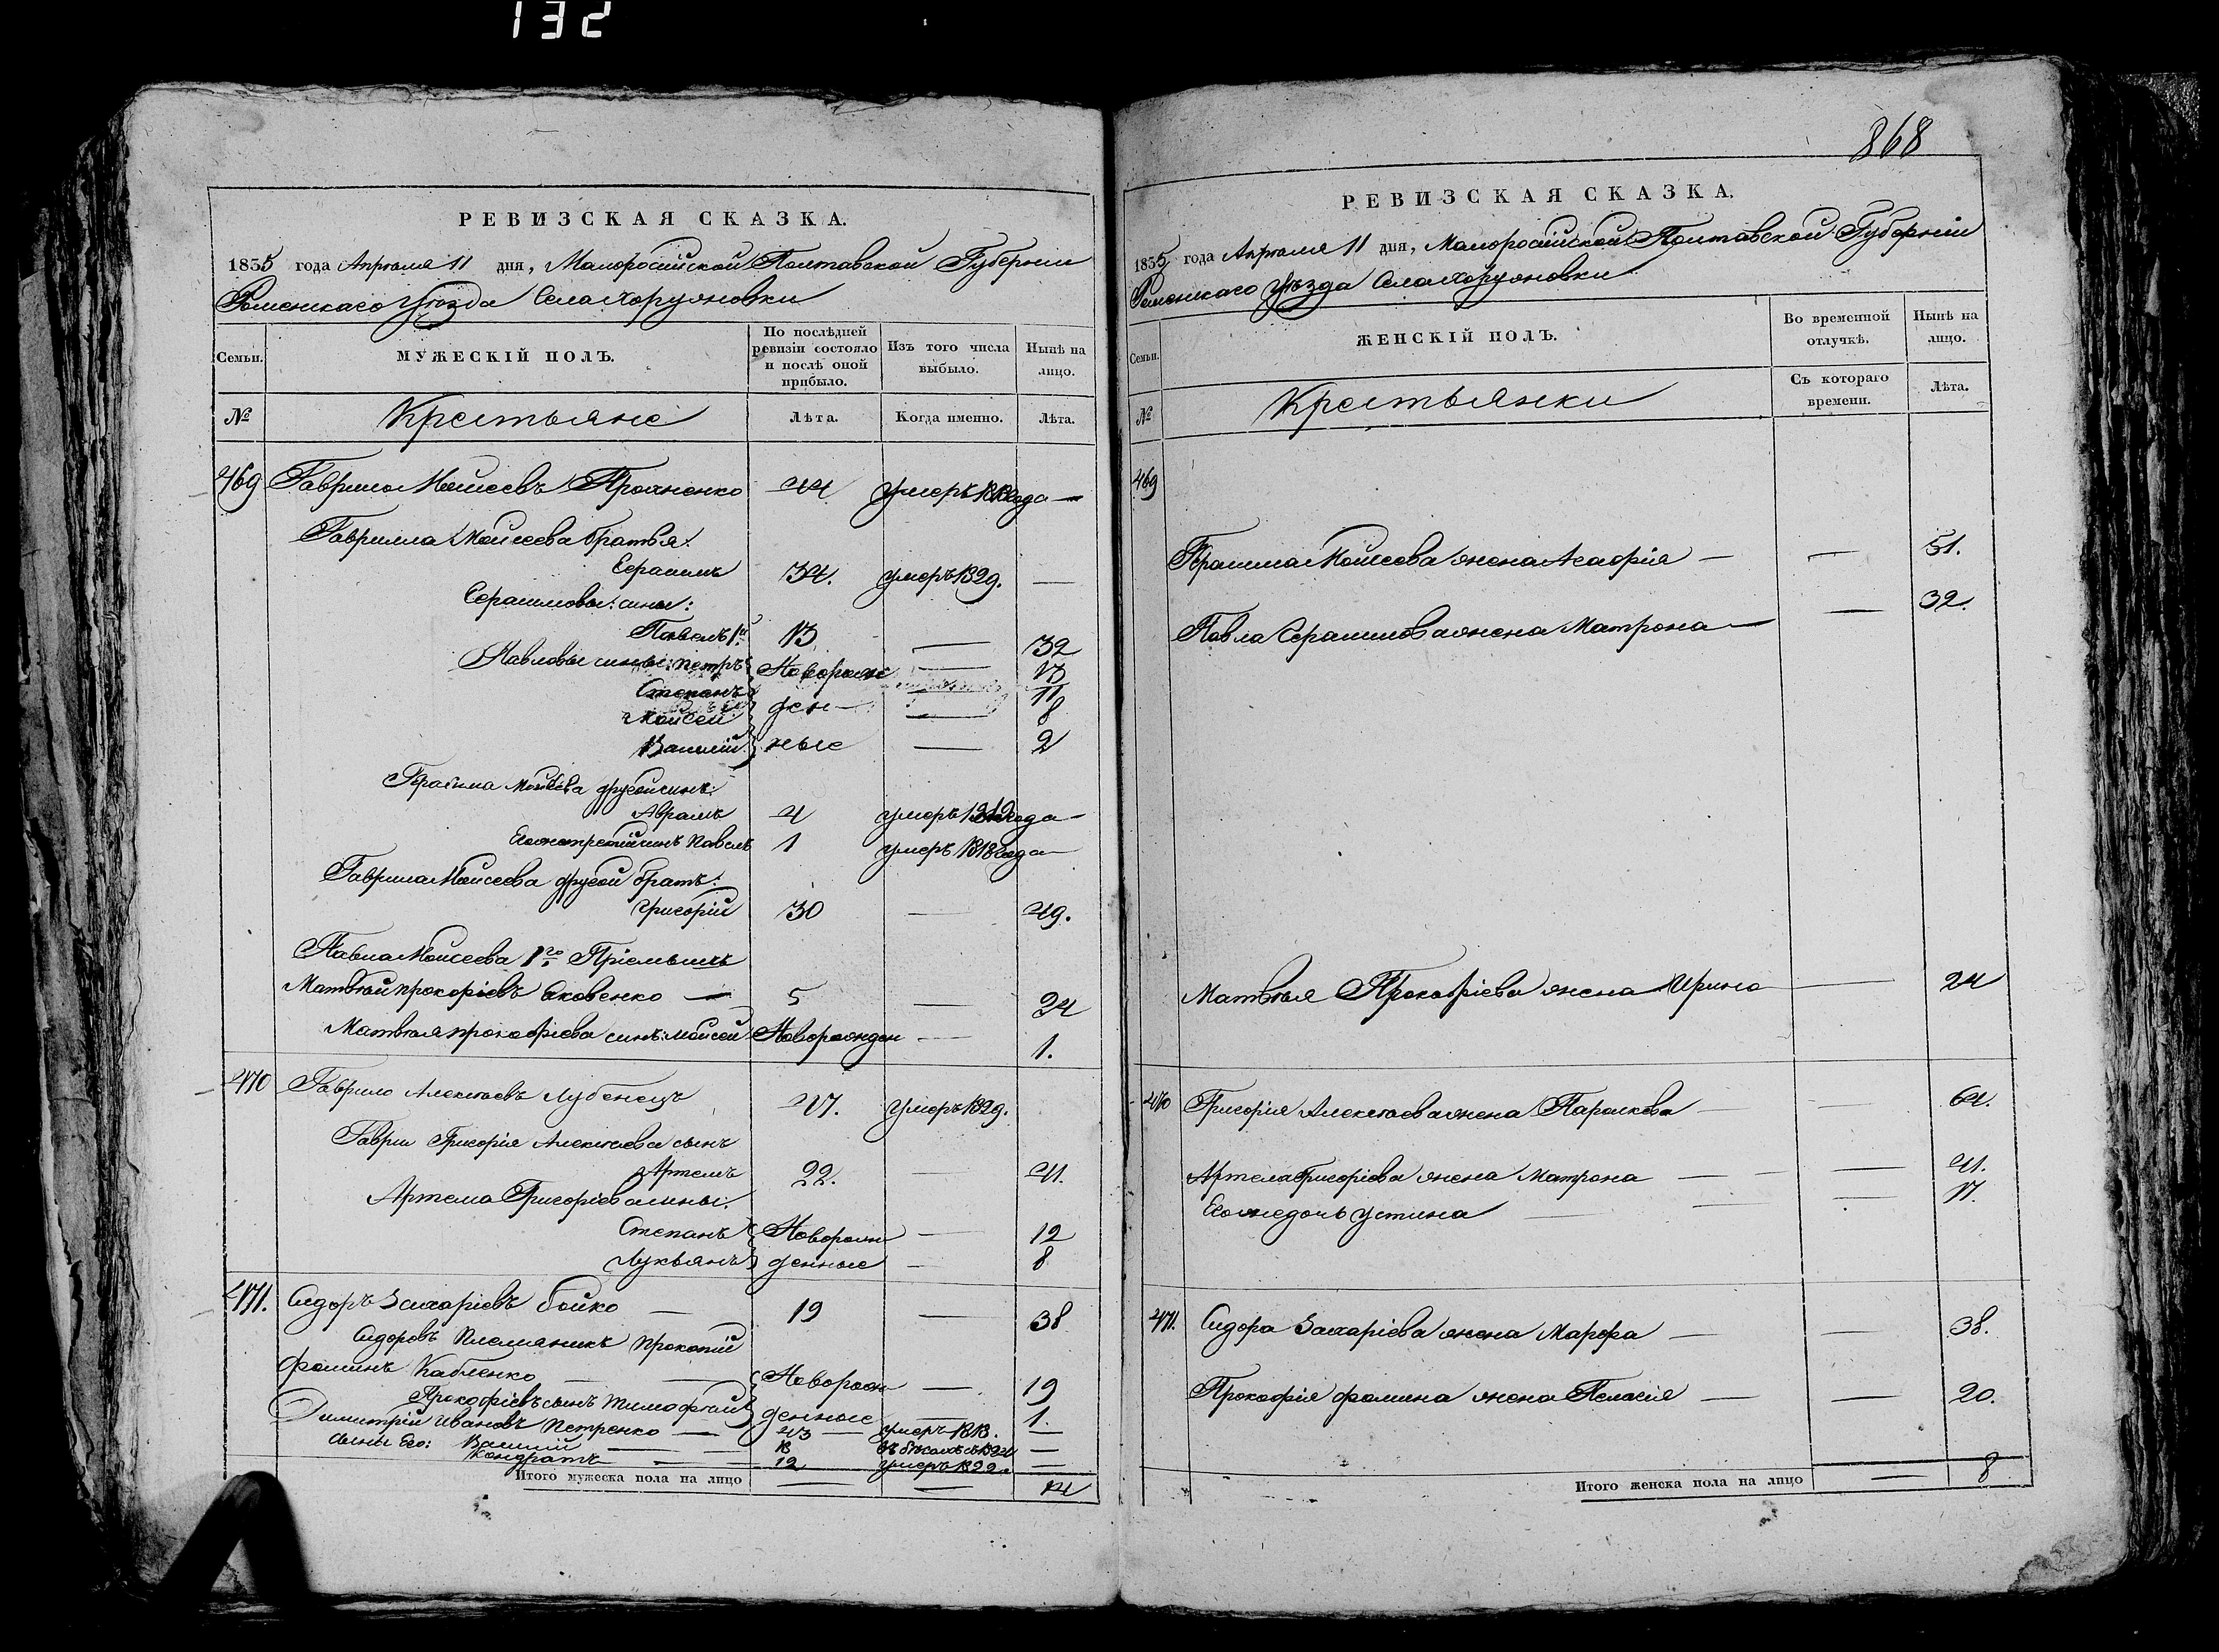 132
868
РЕВИЗСКАЯ СКАЗКА.
1835 года Апреля 11 дня, Малоросійской Полтавской Губерніи
Роменскаго Уезда Села Хоружовки
Семьи. МУЖЕСКІЙ ПОЛЪ. По послѣдней ревизіи состояло и послѣ оной прибыло. Изъ того числа выбыло. Нынѣ на лицо.
№ Крестьяне Лѣта. Когда именно. Лѣта.
469 Гаврило Моисеевъ 44 умеръ года —
Гаврила Моисеева братья:
Герасимъ 34. умеръ 1829. —
Герасимовы сины:
Павелъ 1й 13 — 32
Павловы сины: Петръ Новорож — 13
Степанъ — 11
Моисей ден — 8
Василій ные — 2
Герасима Моисеева другой синъ:
Аврамъ 4 умеръ года —
Егоже третій синъ Павелъ 1 умеръ 1818 года —
Гаврила Моисеева другой братъ:
Григорій 30 — 49.
Павла Моисеева 1го Пріемышъ
Матвей Прокофіевъ Яковенко — 5 — 24
Матвея Прокофіева синъ: Моисей Новорожден — 1.
470 Гаврило Алексеевъ Лубенецъ 47. умеръ 1829.
Григорія Алексеева сынъ
Артемъ 22. — 41.
Артема Григоріева сины:
Степанъ Новорож — 12
Лукьянъ денные — 8
471. Сидоръ Захаріевъ Бойко — 19 — 38
Сидоровъ племяникъ Прокопій
Фоминъ Кабленко — — Новорож — 19
Прокофіевъ сынъ Тимофей денные — 1.
Димитрій Ивановъ Петренко — 43 — умеръ 1813. —
сыны Его: Василій — — 18 —
Кондратъ — — 12 умеръ 1822 —
Итого мужеска пола на лицо — — 14
РЕВИЗСКАЯ СКАЗКА.
1835 года Апреля 11 дня, Малоросійской Полтавской Губерніи
Роменскаго уезда Села Хоружовки
Семьи. ЖЕНСКІЙ ПОЛЪ. Во временной отлучкѣ. Нынѣ на лицо.
№ Крестьянки Съ котораго времени. Лѣта.
469
Герасима Моисеева жена Агафія — — 51.
Павла Герасимова жена Матрона — — 32.
Матвея Прокофіева жена Ирина — 24
470 Григорія Алексеева жена Параскева — — 64.
Артема Григоріева жена Матрона — — 41.
Его же дочь Устина — — 17.
471. Сидора Захаріева жена Марфа — — 38.
Прокофія Фомина жена Пелагія — — 20.
Итого женска пола на лицо — 8